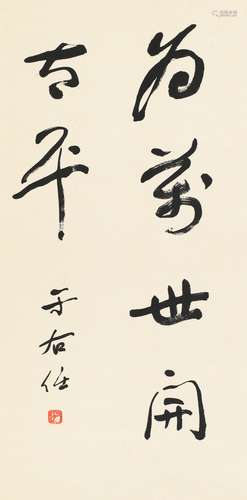 为万世開
太平
于右任